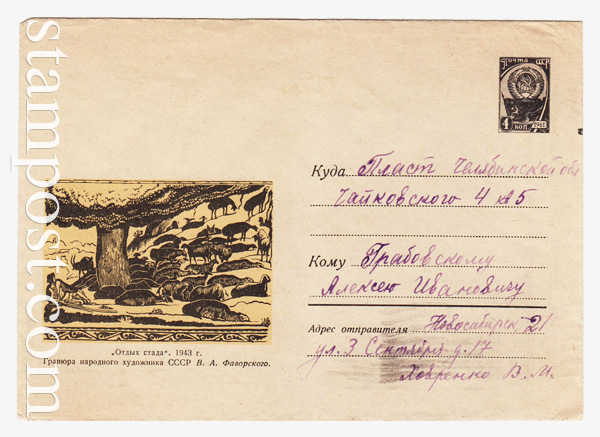 stampost.com
Почта СССР
4 коп.
Куда Пласт Челябинской обл
Чайковского 4 кв 5
Кому Грабовскому
Алексею Ивановичу
Адрес отправителя Новосибирск 21
ул. 3 Сентября д. 17
Ховренко В. М.
„Отдых стада“. 1943 г.
Гравюра народного художника СССР В. А. Фаворского.